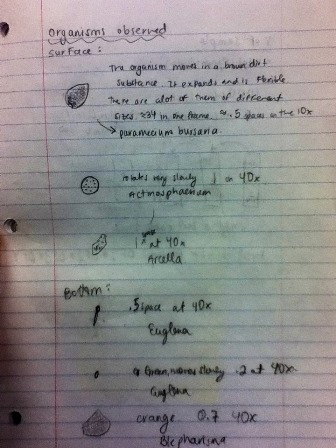 organisms observed
surface:
The organism moves in a brown dirt
substance. It expands and is flexible
there are alot of them of different
sizes. ≈34 in one frame. ≈ .5 spaces in the 10x
paramecium bursaria
rotates very slowly 1 on 40x
Actinosphaerium
1 at 40x
Arcella
Bottom:
.5 space at 40x
Euglena
Green, moves slowly .2 at 40x
Euglena
orange 0.7 40x
Blepharisma